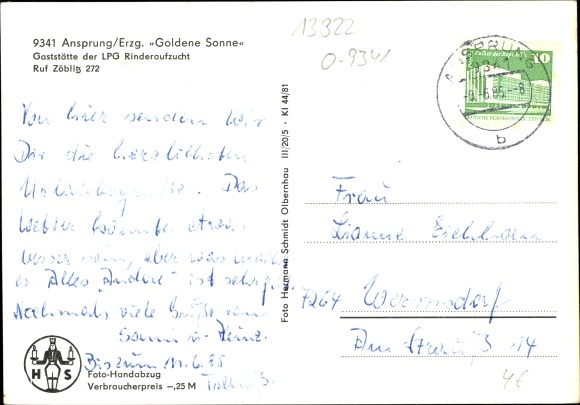 13322
O-9341
9341 Ansprung/Erzg. »Goldene Sonne«
Gaststätte der LPG Rinderaufzucht
Ruf Zöblitz 272
ANSPRUNG
9341
-6.85.-8
b
10
DEUTSCHE DEMOKRATISCHE REPUBLIK
Von hier senden wir
Dir die herzlichsten
Urlaubsgrüße. Das
Wetter könnte etwas
besser sein, aber was macht
es. Alles "Andere" ist sehr gut
Nochmals viele Grüße von
u. Heinz.
Bis zum 11.6.85
Foto Hermann Schmidt Olbernhau III/20/5 · Kl 44/81
Frau
Lianne Eichhorn
7264 Wermsdorf
14
H S
Foto-Handabzug
Verbraucherpreis –,25 M
4€